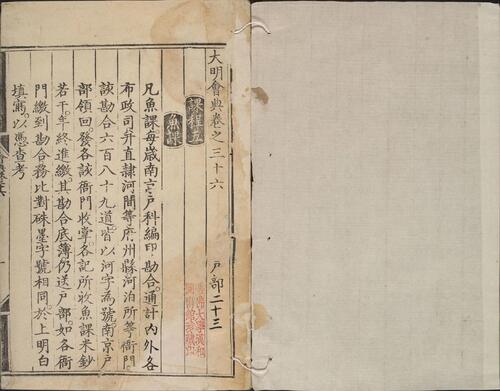 大明會典卷之三十六
戶部二十三
課程五
魚課
凡魚課。每歲南京戶科編印勘合。通計內外各
布政司并直隸河間等府州縣河泊所等衙門。
該勘合六百八十九道。皆以河字為號。南京戶
部領回。發各該衙門收掌。各記所收魚課米鈔
若干。年終進繳。其勘合底簿仍送戶部。如各衙
門繳到勘合。務比對硃墨字號相同。於上明白
填寫。以憑查考